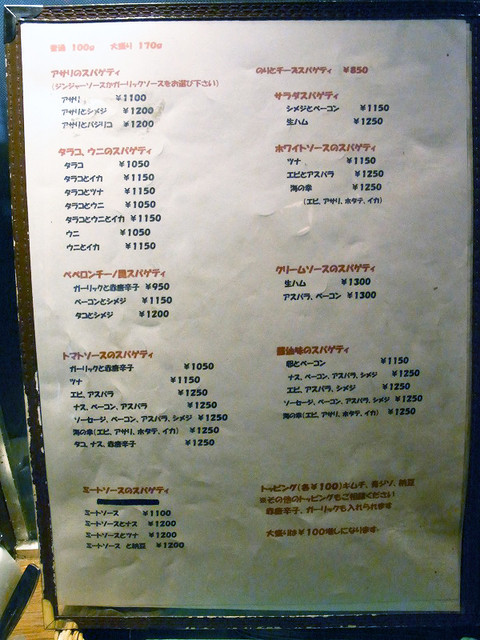 普通 100g 大盛り 170g
アサリのスパゲティ
(ジンジャーソースかガーリックソースをお選び下さい)
アサリ ¥1100
アサリとシメジ ¥1200
アサリとバジリコ ¥1200
タラコ、ウニのスパゲティ
タラコ ¥1050
タラコとイカ ¥1150
タラコとツナ ¥1150
タラコとウニ ¥1050
タラコとウニとイカ ¥1150
ウニ ¥1050
ウニとイカ ¥1150
ペペロンチーノ風スパゲティ
ガーリックと赤唐辛子 ¥950
ベーコンとシメジ ¥1150
タコとシメジ ¥1200
トマトソースのスパゲティ
ガーリックと赤唐辛子 ¥1050
ツナ ¥1150
エビ、アスパラ ¥1250
ナス、ベーコン、アスパラ ¥1250
ソーセージ、ベーコン、アスパラ、シメジ ¥1250
海の幸(エビ、アサリ、ホタテ、イカ) ¥1250
タコ、ナス、赤唐辛子 ¥1250
ミートソースのスパゲティ
ミートソース ¥1100
ミートソースとナス ¥1200
ミートソースとツナ ¥1200
ミートソース と納豆 ¥1200
のりとチーズスパゲティ ¥850
サラダスパゲティ
シメジとベーコン ¥1150
生ハム ¥1250
ホワイトソースのスパゲティ
ツナ ¥1150
エビとアスパラ ¥1250
海の幸 ¥1250
(エビ、アサリ、ホタテ、イカ)
クリームソースのスパゲティ
生ハム ¥1300
アスパラ、ベーコン ¥1300
醤油味のスパゲティ
とベーコン ¥1150
ナス、ベーコン、アスパラ、シメジ ¥1250
エビ、アスパラ、シメジ ¥1250
ソーセージ、ベーコン、アスパラ、シメジ ¥1250
海の幸(エビ、アサリ、ホタテ、イカ) ¥1250
トッピング(各¥100)キムチ、青ジソ、納豆
※その他のトッピングもご相談ください
赤唐辛子、ガーリックも入れられます
大盛りは¥100増しになります